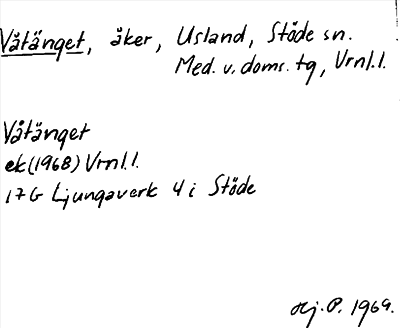 Våtänget, åker, Usland, Stöde sn.
Med. v. doms. tg, Vrnl. l.
Våtänget
ek (1968) Vrnl. l.
17G Ljungaverk 4 i Stöde
Hj. P. 1969.